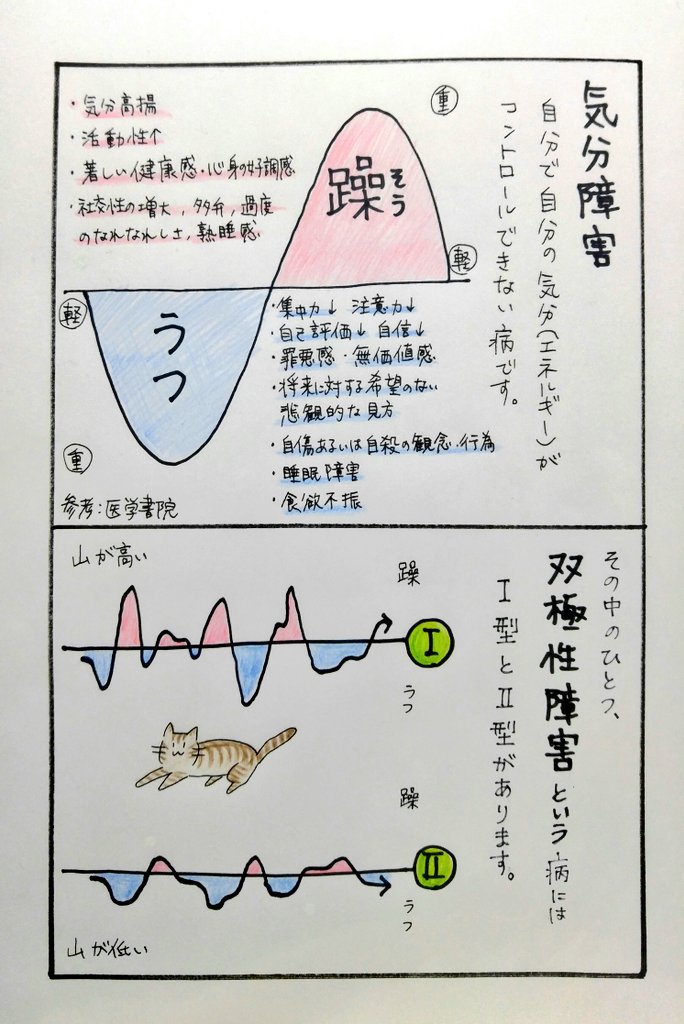 気分障害
自分で自分の気分(エネルギー)が
コントロールできない病です。
・気分高揚
・活動性↑
・著しい健康感・心身の好調感
・社交性の増大,多弁,過度
のなれなれしさ,熟睡感
重
躁
そう
軽
軽
うつ
重
・集中力↓ 注意力↓
・自己評価↓ 自信↓
・罪悪感・無価値感
・将来に対する希望のない
悲観的な見方
・自傷あるいは自殺の観念・行為
・睡眠障害
・食欲不振
参考:医学書院
その中のひとつ、
双極性障害という病には
Ⅰ型とⅡ型があります。
山が高い
躁
Ⅰ
うつ
躁
Ⅱ
うつ
山が低い